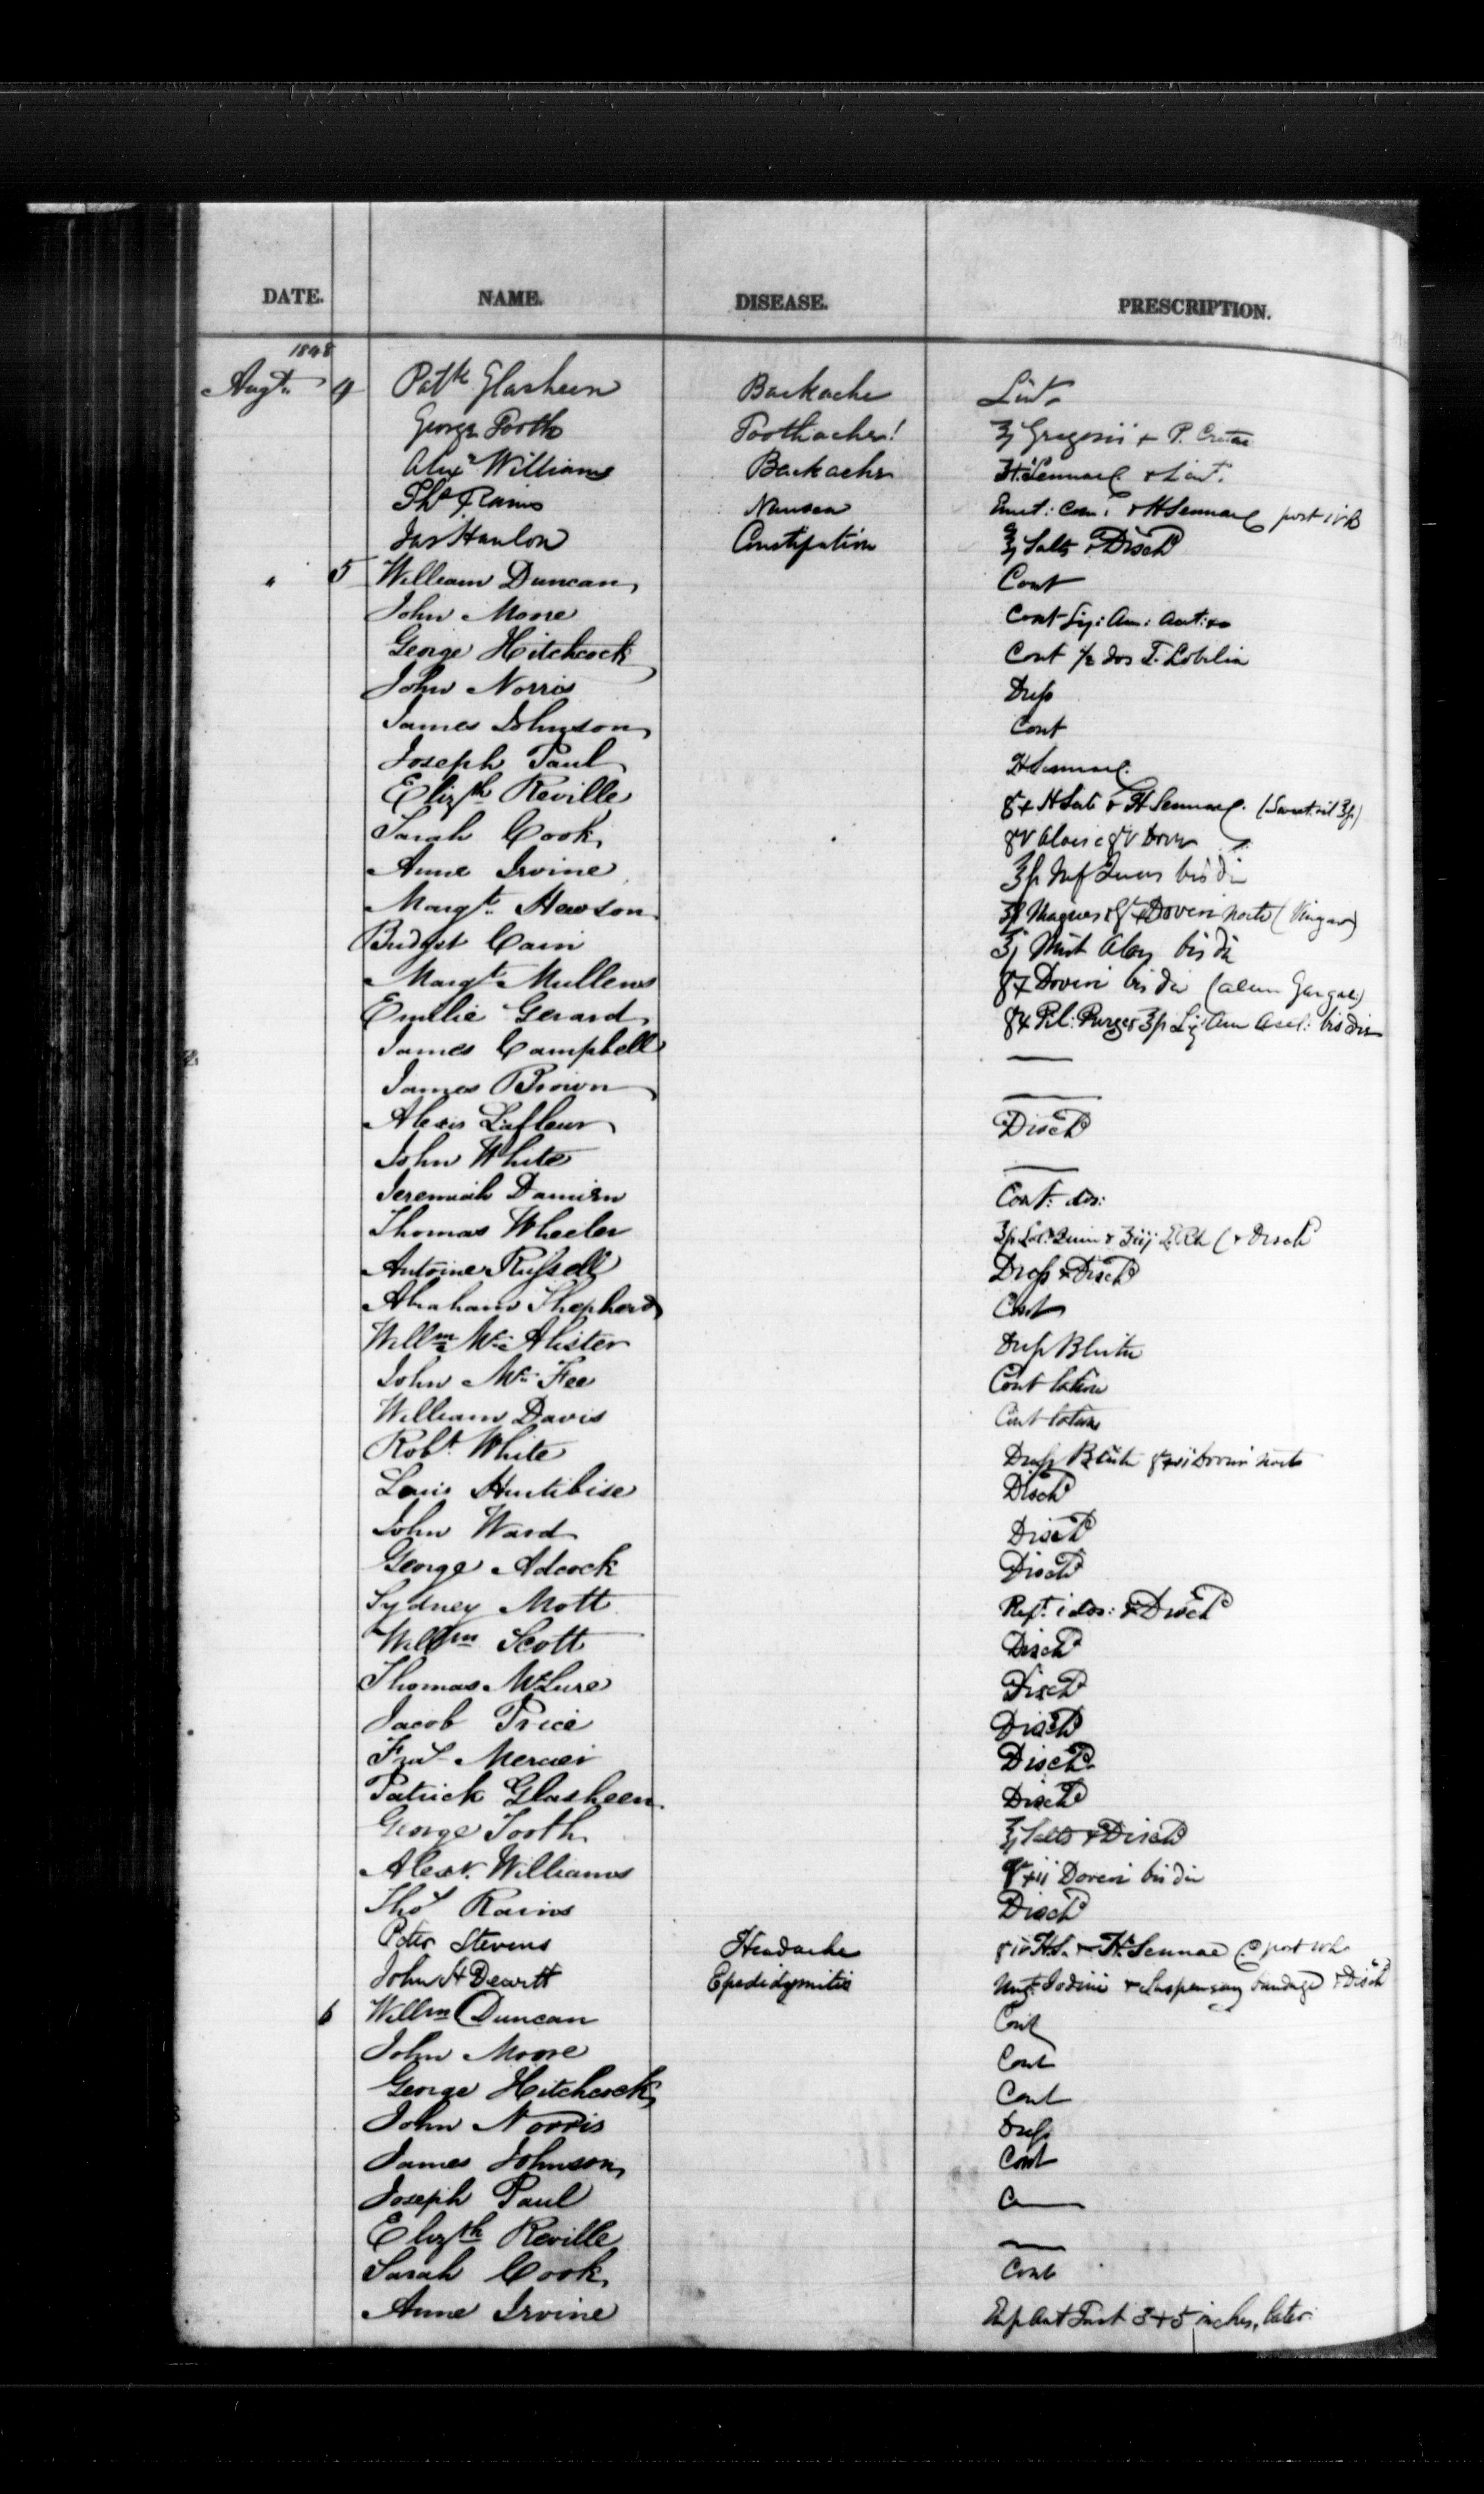 DATE. NAME. DISEASE. PRESCRIPTION.
1848
Augt. 4 Patk Glasheen Backache Lint.
George Tooth Toothache! ʒj Gregorii + P. Cretae
Alexr Williams Backache H. Sennae + Lint.
Thos Rains Nausea Emet: Com: + H Sennae post
Jas Hanlon Constipation ℥j Salts + Disch
" 5 William Duncan Cont
John Moore Cont Liq: Am: Acet:
George Hitchcock Cont ½ dos T. Lobelia
John Norris Dress
James Johnson Cont
Joseph Paul H Sennae
Elizth Reville H Sennae
Sarah Cook
Anne Irvine bis die
Margt. Hewson Doveri nocte
Bridget Cain Mist Aloes bis die
Margt Mullens Doveri bis die (alum Gargae)
Emilie Gerard Pil: Purg Liq Am Acet: bis die
James Campbell —
James Brown —
Alexis Lafleur Disch
John White —
Jeremiah Damien Cont: dos:
Thomas Wheeler + Disch
Antoine Russell Dress + Disch
Abraham Shepherd Cont
Willm Mc Alister Dress Blister
John Mc Fee Cont lotion
William Davis Cont lotion
Robt. White Dress Blister Doveri nocte
Louis Hurtibise Disch
John Ward Disch
George Adcock Disch
Sydney Mott Rept. i dos: + Disch
Willm Scott Disch
Thomas McLure Disch
Jacob Price Disch
Mercier Disch
Patrick Glasheen Disch
George Tooth ℥j Salts + Disch
Alexr. Williams Doveri bis die
Thos Rains Disch
Peter Stevens Headache H. Sennae
John H Dewitt Epedidymitis Ung: Iodinii + Suspensary bandage + Disch
6 Willm Duncan Cont
John Moore Cont
George Hitchcock Cont
John Norris Dress
James Johnson Cont
Joseph Paul C—
Elizth Reville —
Sarah Cook Cont
Anne Irvine Emp Ant Tart 3 + 5 inches, later